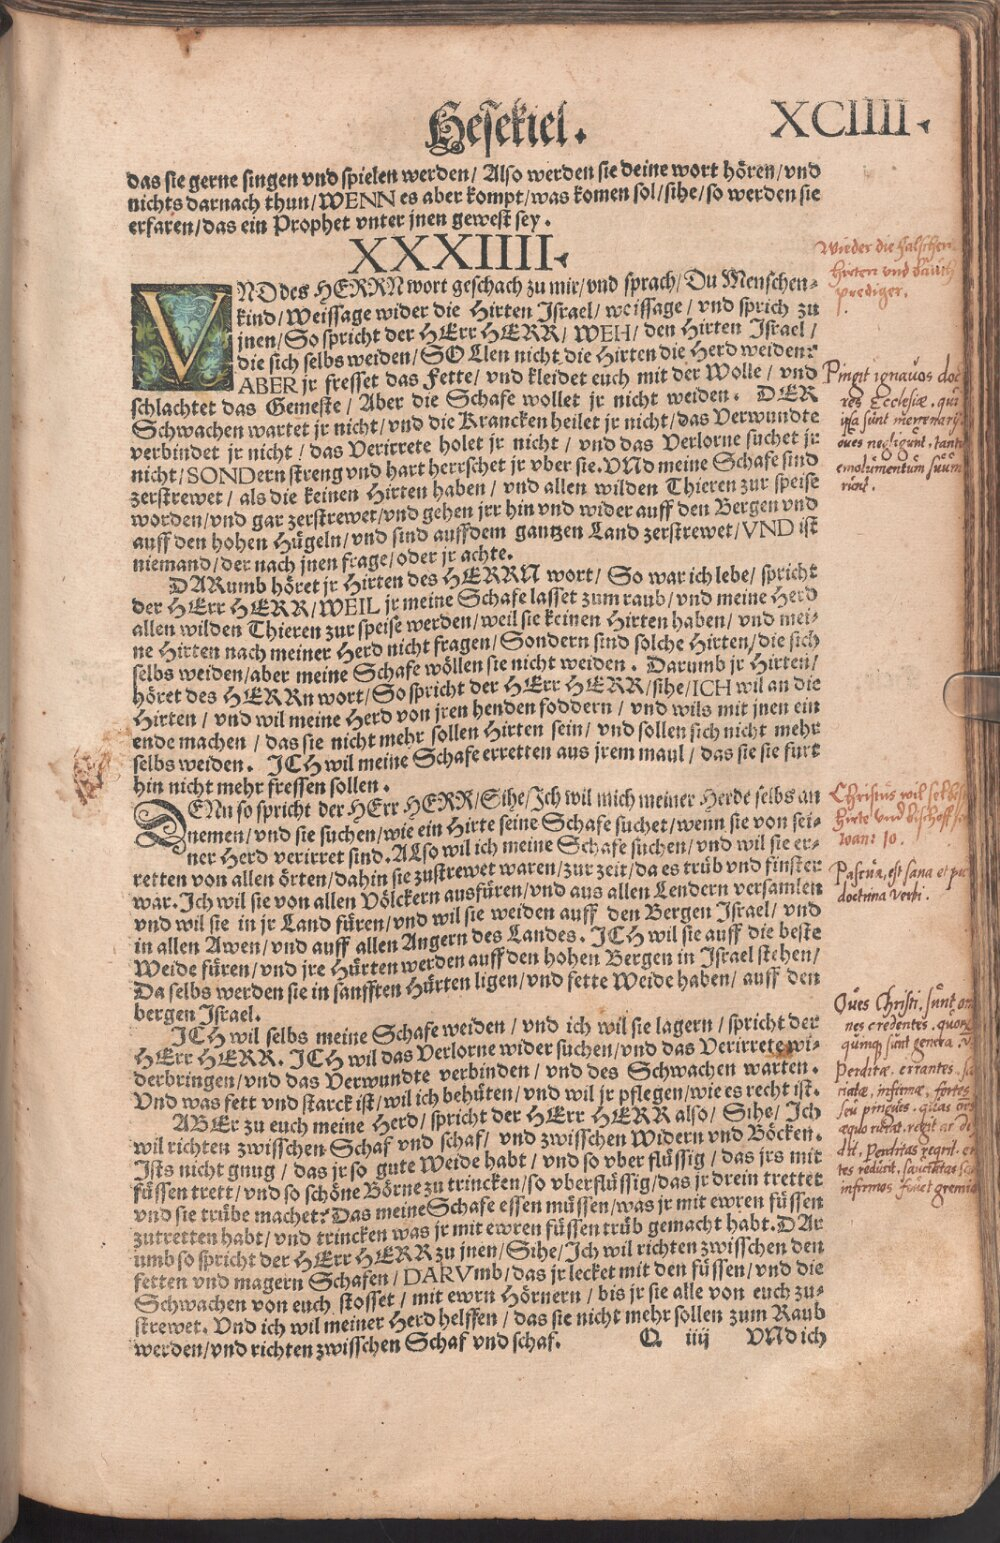 Hesekiel.
XCIIII.
das sie gerne singen vnd spielen werden/ Also werden sie deine wort hören/vnd
nichts darnach thun/WENN es aber kompt/was komen sol/sihe/so werden sie
erfaren/das ein Prophet vnter jnen gewest sey.
XXXIIII.
VND des HERRN wort geschach zu mir/vnd sprach/Du Menschen-
kind/Weissage wider die Hirten Israel/weissage/vnd sprich zu
jnen/So spricht der HErr HERR/WEH/den Hirten Israel/
die sich selbs weiden/SOLlen nicht die Hirten die Herd weiden?
ABER jr fresset das Fette/vnd kleidet euch mit der Wolle/vnd
schlachtet das Gemeste/Aber die Schafe wollet jr nicht weiden. DER
Schwachen wartet jr nicht/vnd die Krancken heilet jr nicht/das Verwundte
verbindet jr nicht/das Verirrete holet jr nicht/vnd das Verlorne suchet jr
nicht/SONDern streng vnd hart herrschet jr vber sie. VNd meine Schafe sind
zerstrewet/als die keinen Hirten haben/vnd allen wilden Thieren zur speise
worden/vnd gar zerstrewet/vnd gehen jrr hin vnd wider auff den Bergen vnd
auff den hohen Hügeln/vnd sind auff dem gantzen Land zerstrewet/VND ist
niemand/der nach jnen frage/oder jr achte.
DARumb höret jr Hirten des HERRN wort/So war ich lebe/spricht
der HErr HERR/WEIL jr meine Schafe lasset zum raub/vnd meine Herd
allen wilden Thieren zur speise werden/weil sie keinen Hirten haben/vnd mei-
ne Hirten nach meiner Herd nicht fragen/Sondern sind solche Hirten/die sich
selbs weiden/aber meine Schafe wöllen sie nicht weiden. Darumb jr Hirten/
höret des HERRn wort/So spricht der HErr HERR/sihe/ICH wil an die
Hirten/vnd wil meine Herd von jren henden foddern/vnd wils mit jnen ein
ende machen/das sie nicht mehr sollen Hirten sein/vnd sollen sich nicht mehr
selbs weiden. ICH wil meine Schafe erretten aus jrem maul/das sie sie furt
hin nicht mehr fressen sollen.
DENn so spricht der HErr HERR/Sihe/Ich wil mich meiner Herde selbs an
nemen/vnd sie suchen/wie ein Hirte seine Schafe suchet/wenn sie von sei-
ner Herd verirret sind. ALso wil ich meine Schafe suchen/vnd wil sie er-
retten von allen örten/dahin sie zustrewet waren/zur zeit/da es trüb vnd finster
war. Ich wil sie von allen Völckern ausfüren/vnd aus allen Lendern versamlen
vnd wil sie in jr Land füren/vnd wil sie weiden auff den Bergen Israel/vnd
in allen Awen/vnd auff allen Angern des Landes. ICH wil sie auff die beste
Weide füren/vnd jre Hürten werden auff den hohen Bergen in Israel stehen/
Da selbs werden sie in sanfften Hürten ligen/vnd fette Weide haben/auff den
bergen Israel.
ICH wil selbs meine Schafe weiden/vnd ich wil sie lagern/spricht der
HErr HERR. ICH wil das Verlorne wider suchen/vnd das Verirrete wi-
derbringen/vnd das Verwundte verbinden/vnd des Schwachen warten.
Vnd was fett vnd starck ist/wil ich behüten/vnd wil jr pflegen/wie es recht ist.
ABEr zu euch meine Herd/spricht der HErr HERR also/Sihe/Ich
wil richten zwisschen Schaf vnd schaf/vnd zwisschen Widern vnd Böcken.
Ists nicht gnug/das jr so gute Weide habt/vnd so vber flüssig/das jrs mit
füssen trett/vnd so schöne Börne zu trincken/so vberflüssig/das jr drein trettet
vnd sie trübe machet? Das meine Schafe essen müssen/was jr mit ewren füssen
zutretten habt/vnd trincken was jr mit ewren füssen trüb gemacht habt. DAr
umb so spricht der HErr HERR zu jnen/Sihe/Ich wil richten zwisschen den
fetten vnd magern Schafen/DARVmb/das jr lecket mit den füssen/vnd die
Schwachen von euch stosset/mit ewrn Hörnern/bis jr sie alle von euch zu-
strewet. Vnd ich wil meiner Herd helffen/das sie nicht mehr sollen zum Raub
werden/vnd richten zwisschen Schaf vnd schaf.
Q iiij VNd ich
Wieder die falschen
Hirten vnd Bäuch
prediger.
Pingit ignavos doc
res Ecclesiæ. qui
ipsa sunt mercenarij
oues negligunt. tantu
emolumentum suum
Christus wil selbst
Hirte vnd Bischoff
10.
Pascua, est sana et pu
doctrina Verbi.
Oues Christi. sunt om
nes credentes. quor
qumq sunt genera.
Perditæ. errantes.
infirmæ. fortes
seu pingues. quas
regit
Perditas
tes reducit.
infirmos fouet gremio